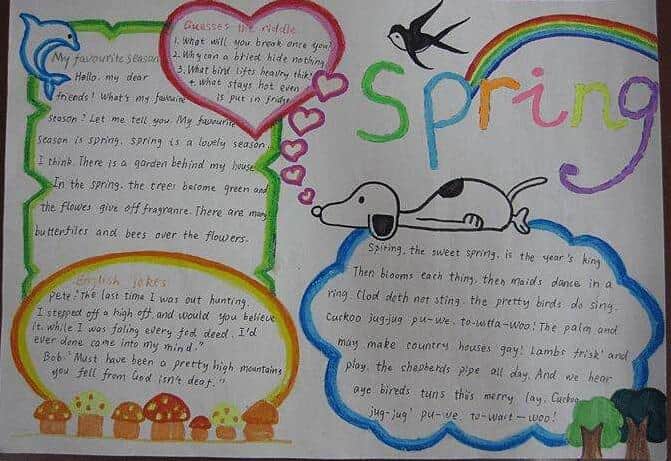 My favourite season
Hallo. my dear
friends! What's my favourite
season? Let me tell you. My favourite
season is spring. spring is a lovely season.
I think. There is a garden behind my house
In the spring. the trees become green and
the flowes give off fragranre. There are many
butterflies and bees over the flowers.
Guesses the riddle
1. What will you break once you
2. Why can a bried hide nothing
3. What bird lifts heavry thike
4. what stays hot even
is put in fridge
Spring
English jokes
Pete: "The last time I was out hunting.
I stepped off a high off and would you believe
it. while I was faling every fed deed. I'd
ever done came into my mind."
Bob. "Must have been a pretty high mountaing
you fell from God isn't deaf."
Spiring. the sweet spring. is the year's king
Then blooms each thing. then maids dance in a
ring. Clod deth not sting. the pretty birds do sing.
Cuckoo jug-jug. pu-we. to-witta-woo! The palm and
may make country houses gay! Lambs frisk' and
play. the shepherds pipe all day. And we hear
aye bireds tuns this merry. lay. Cuckoo
jug-jug' pu-we. to-wait-woo!